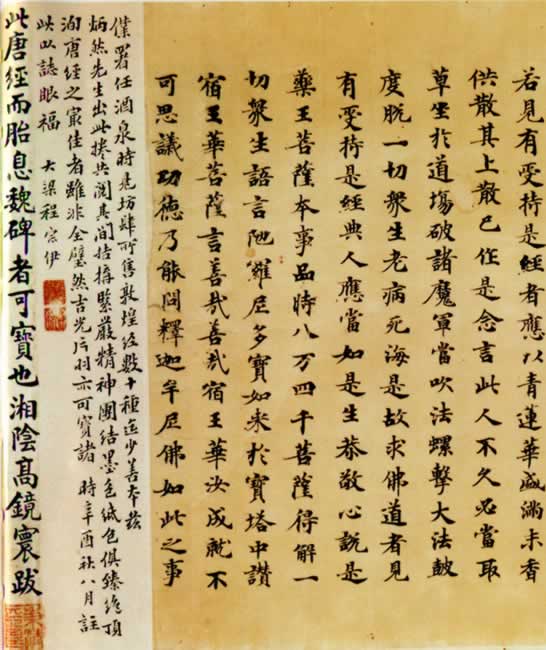 若見有受持是經者應以青蓮華盛滿末香
供散其上散已作是念言此人不久必當取
草坐於道場破諸魔軍當吹法螺擊大法皷
度脫一切衆生老病死海是故求佛道者見
有受持是經典人應當如是生恭敬心說是
藥王菩薩本事品時八万四千菩薩得解一
切衆生語言陁羅尼多寶如来於寶塔中讃
宿王華菩薩言善㢤善㢤宿王華汝成就不
可思議功德乃能問釋迦牟尼佛如此之事
僕署任酒泉時見坊肆所售敦煌經數十種迄少善本茲
炳然先生出此捲共閱其間結構緊嚴精神團結墨色紙色俱臻絶頂
洵唐經之最佳者雖非全璧然吉光片羽亦可寶諸 時辛酉秋八月註
此以誌眼福 大梁程宗伊
此唐經而胎息魏碑者可寶也湘陰高鏡寰跋